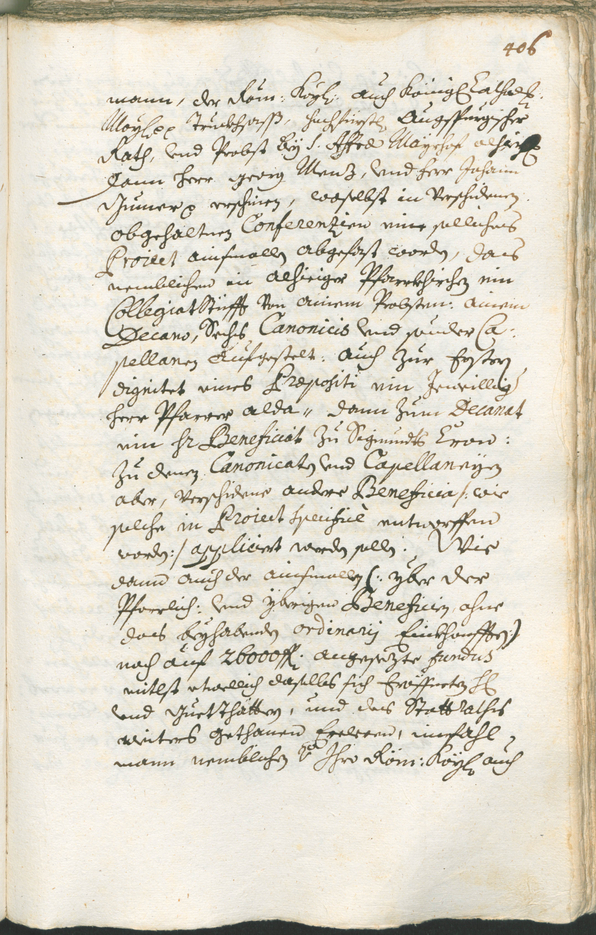 406
mann, der Röm: Kayl: auch Königl Cathol:
May: Truchsäss, hochfürstl Augspurgischer
Rath, vnd Probst bey S. Affræ Mayrhof alhier
dann Herr Georg Menz, vnd Herr Johann
erschinen, woselbst in Verschidenen
obgehaltnen Conferentien eine solliches
Proiect ainsmalls abgefast worden, dass
nemblichen in alhieiger Pfarrkhirchen ein
Collegiat Stüfft von ainem Probsten: ainem
Decano, Sechs Canonicis vnd sonder Ca-
pellanen aufgestelt: auch zur Ersten
dignitet eines Præpositi ein Jeweillig
Herr Pfarrer alda, dann zum Decanat
ein hr Beneficiat zu Sigmundts Cron:
zu denen Canonicaten vnd Capellaneyen
aber, Verschidene andere Beneficia /: wie
solche in Proiect specificè entworffen
worden :/ appliciert werden sollen. Wie
dann auch der ainsmallen (: yber der
Pfarrlich: vnd ybrigen Beneficien ohne
das beyhabenden ordinarij Einkhonfften :)
noch auf 26000 fl: angesetzte fundus
mitlst etwellich daselbs sich Eröffneten
vnd Guetthätten, vnd des Statt Raths
weiters gethanen, einfahl,
mann nemblichen Ihro Röm: Kayl auch